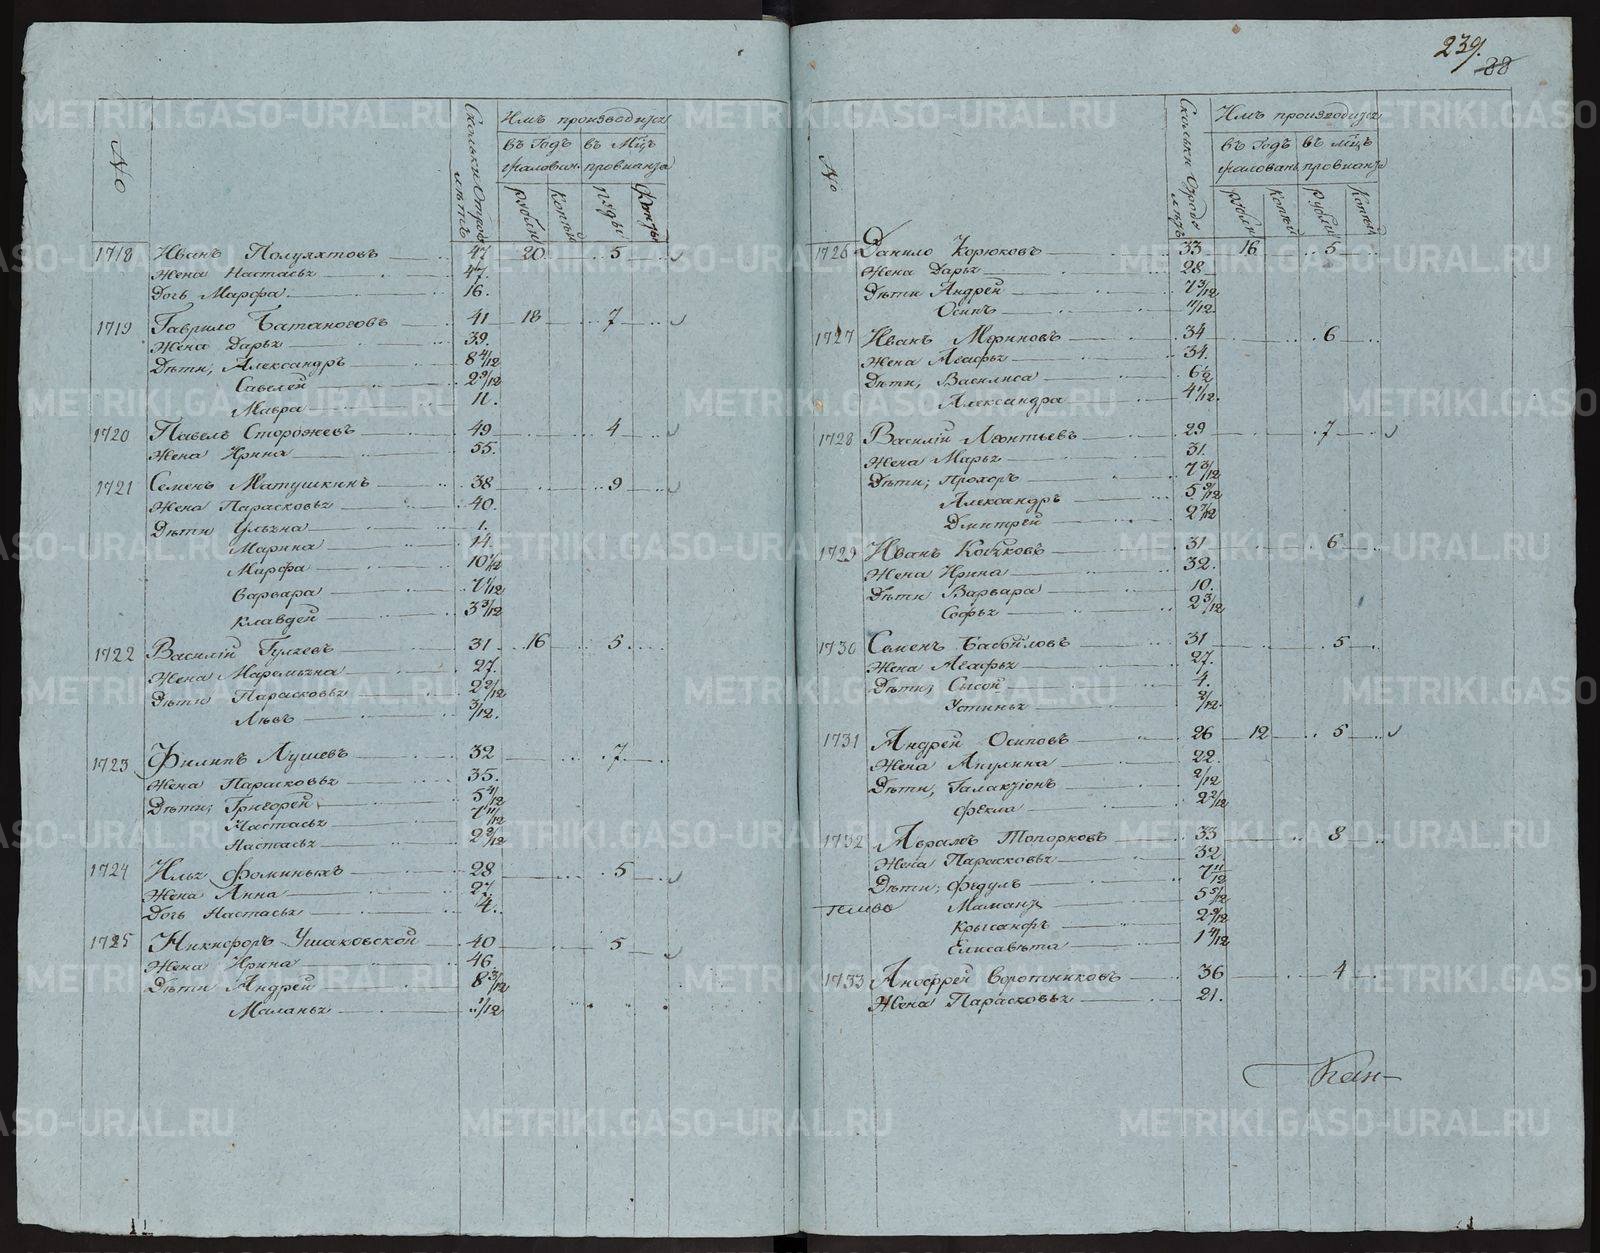 239.
88
No
Сколько Отроду лѣтъ
Имъ производится
въ Годъ жалован.
въ Мцъ провианта
Рубли
Копѣй
Пуды
Фунты
1718 Иванъ Полуяхтовъ 47 20 5
Жена Настасья 47.
Дочь Марфа 16.
1719 Гаврило Батаноговъ 41 18 7
Жена Дарья 39.
Дѣти, Александръ 8 4/12
Савелей 2 9/12
Мавра 11.
1720 Павелъ Сторожевъ 49 4
Жена Ирина 55.
1721 Семенъ Матушкинъ 38 9
Жена Парасковья 40.
Дѣти Ульяна 1.
Марина 14.
Марфа 10 1/12
Варвара 7 1/12
Клавдей 3 3/12
1722 Василій Гуляевъ 31 16 5
Жена 27.
Дѣти Парасковья 2 2/12
Львъ 3/12.
1723 Филипъ Лушевъ 32 7
Жена Парасковья 35.
Дѣти, Григорей 5 4/12
Настасья 7 11/12
Настасья 2 2/12
1724 Илья Фоминыхъ 28 5
Жена Анна 27.
Дочь Настасья 4.
1725 Никифоръ Ушаковской 40 5
Жена Ирина 46.
Дѣти Андрей 8 3/12
Маланья 1/12
No
Сколько Отроду лѣтъ
Имъ производится
въ Годъ жалованъ
въ Мцъ провианта
Рубли
Копѣй
Рубли
Копѣй
1726 Данило Корюковъ 33 16 5
Жена Дарья 28
Дѣти Андрей 7 3/12
Осипъ 11/12
1727 Иванъ Мериновъ 34 6
Жена Агафья 34.
Дѣти, Василиса 6 1/2
Александра 4 1/12.
1728 Василій Леонтьевъ 29 7
Жена Марья 31.
Дѣти; Прохоръ 7 3/12
Александръ 5 9/12
Дмитрей 2 7/12
1729 Иванъ Кобяковъ 31 6
Жена Ирина 32.
Дѣти Варвара 10.
Софья 2 3/12
1730 Семенъ Бабайловъ 31 5
Жена Агафья 27.
Дѣти; Сысой 4.
Устинья 2/12
1731 Андрей Осиповъ 26 12 5
Жена Акулина 22.
Дѣти, Галактіонъ 2/12
Фекла 2 2/12
1732 Аврамъ Топорковъ 33 8
Жена Парасковья 32
Дѣти; Федулъ 7 11/12
Мамантъ 5 5/12
Крысанфъ 2 9/12
Елисавѣта 1 4/12
1733 Андрей Воротниковъ 36 4
Жена Парасковья 21.
METRIKI.GASO-URAL.RU